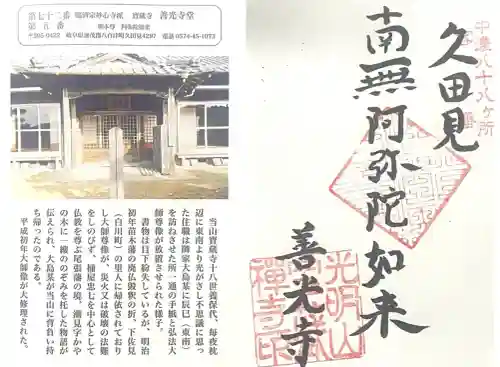 第七十二番 臨済宗妙心寺派 寶蔵寺 善光寺堂
第五番 御本尊 阿弥陀如来
〒505-0422 岐阜県加茂郡八百津町久田見4297 電話 0574-45-1073
当山寶蔵寺十八世養保代、毎夜枕
辺に東南より光がさし不思議に思っ
た住職は御家大島某に辰巳(東南)
を訪ねさせた所一通の手紙と弘法大
師尊像が放置させられた様子。
書物は目下紛失しているが、明治
初年苗木藩の廃仏毀釈の折、下佐見
(白川町)の里人に帰依されており
し大師尊像が、災火又は破壊の法難
をしのびず、樋屋忠七を中心として
仏教を尊ぶ尾張藩の境、潮見字かや
の木に一縷ののぞみを託した物語が
伝えられ、大島某が当山に背負い持
ち帰ったのである。
平成初年大師像が大修理された。
中濃八十八ヶ所
久田見
南無阿弥陀如来
善光寺
光明山
禅寺印